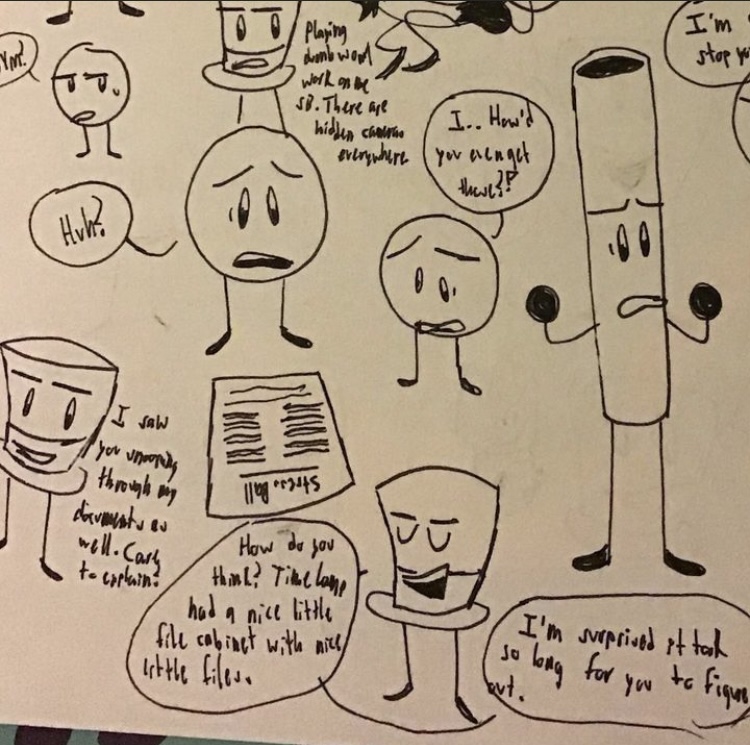 Playing
dumb won't
work on me
SB. There are
hidden cameras
everywhere
I'm
stop yo
I.. How'd
you even get
these?!
Huh?
I saw
you snooping
through my
documents as
well. Care
to explain?
Stress Ball
How do you
think? Time Loop
had a nice little
file cabinet with nice
little files.
I'm surprised it took
so long for you to figure
out.